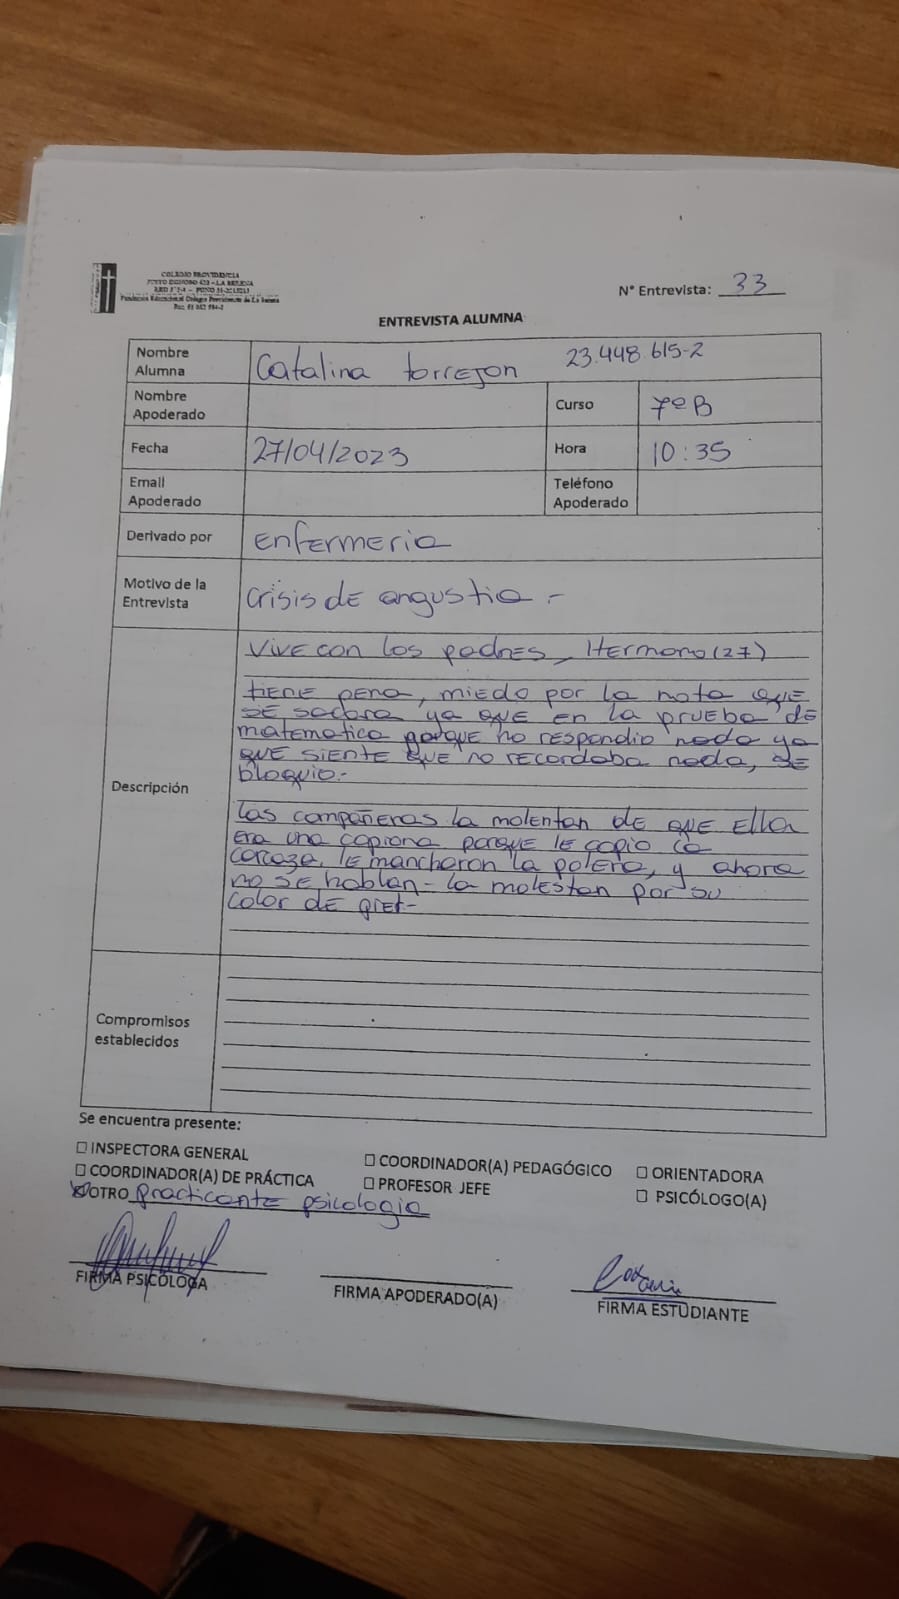 COLEGIO PROVIDENCIA
JUSTO DONOSO 420 - LA SERENA
Fundación Educacional Colegio Providencia de La Serena
N° Entrevista: 33
ENTREVISTA ALUMNA
Nombre Alumna Catalina torrejon 23.448.615-2
Nombre Apoderado
Curso 7º B
Fecha 27/04/2023
Hora 10:35
Email Apoderado
Teléfono Apoderado
Derivado por Enfermeria
Motivo de la Entrevista Crisis de angustia.-
Descripción
Vive con los padres, Hermano (27)
tiene pena, miedo por la nota que
se sacara ya que en la prueba de
matematica porque no respondio nada ya
que siente que no recordaba nada, se
bloquio.-
Las compañeras la molentan de que Ella
era una copiona porque le copio la
carcaza, le mancharon la polera, y ahora
no se hablan - la molestan por su
color de piel-
Compromisos establecidos
Se encuentra presente:
☐ INSPECTORA GENERAL
☐ COORDINADOR(A) PEDAGÓGICO
☐ ORIENTADORA
☐ COORDINADOR(A) DE PRÁCTICA
☐ PROFESOR JEFE
☐ PSICÓLOGO(A)
☒ OTRO practicante psicologia
FIRMA PSICÓLOGA
FIRMA APODERADO(A)
FIRMA ESTUDIANTE